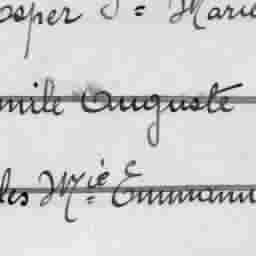 osper J= Marie
mile Auguste
les Mie= Emmanu